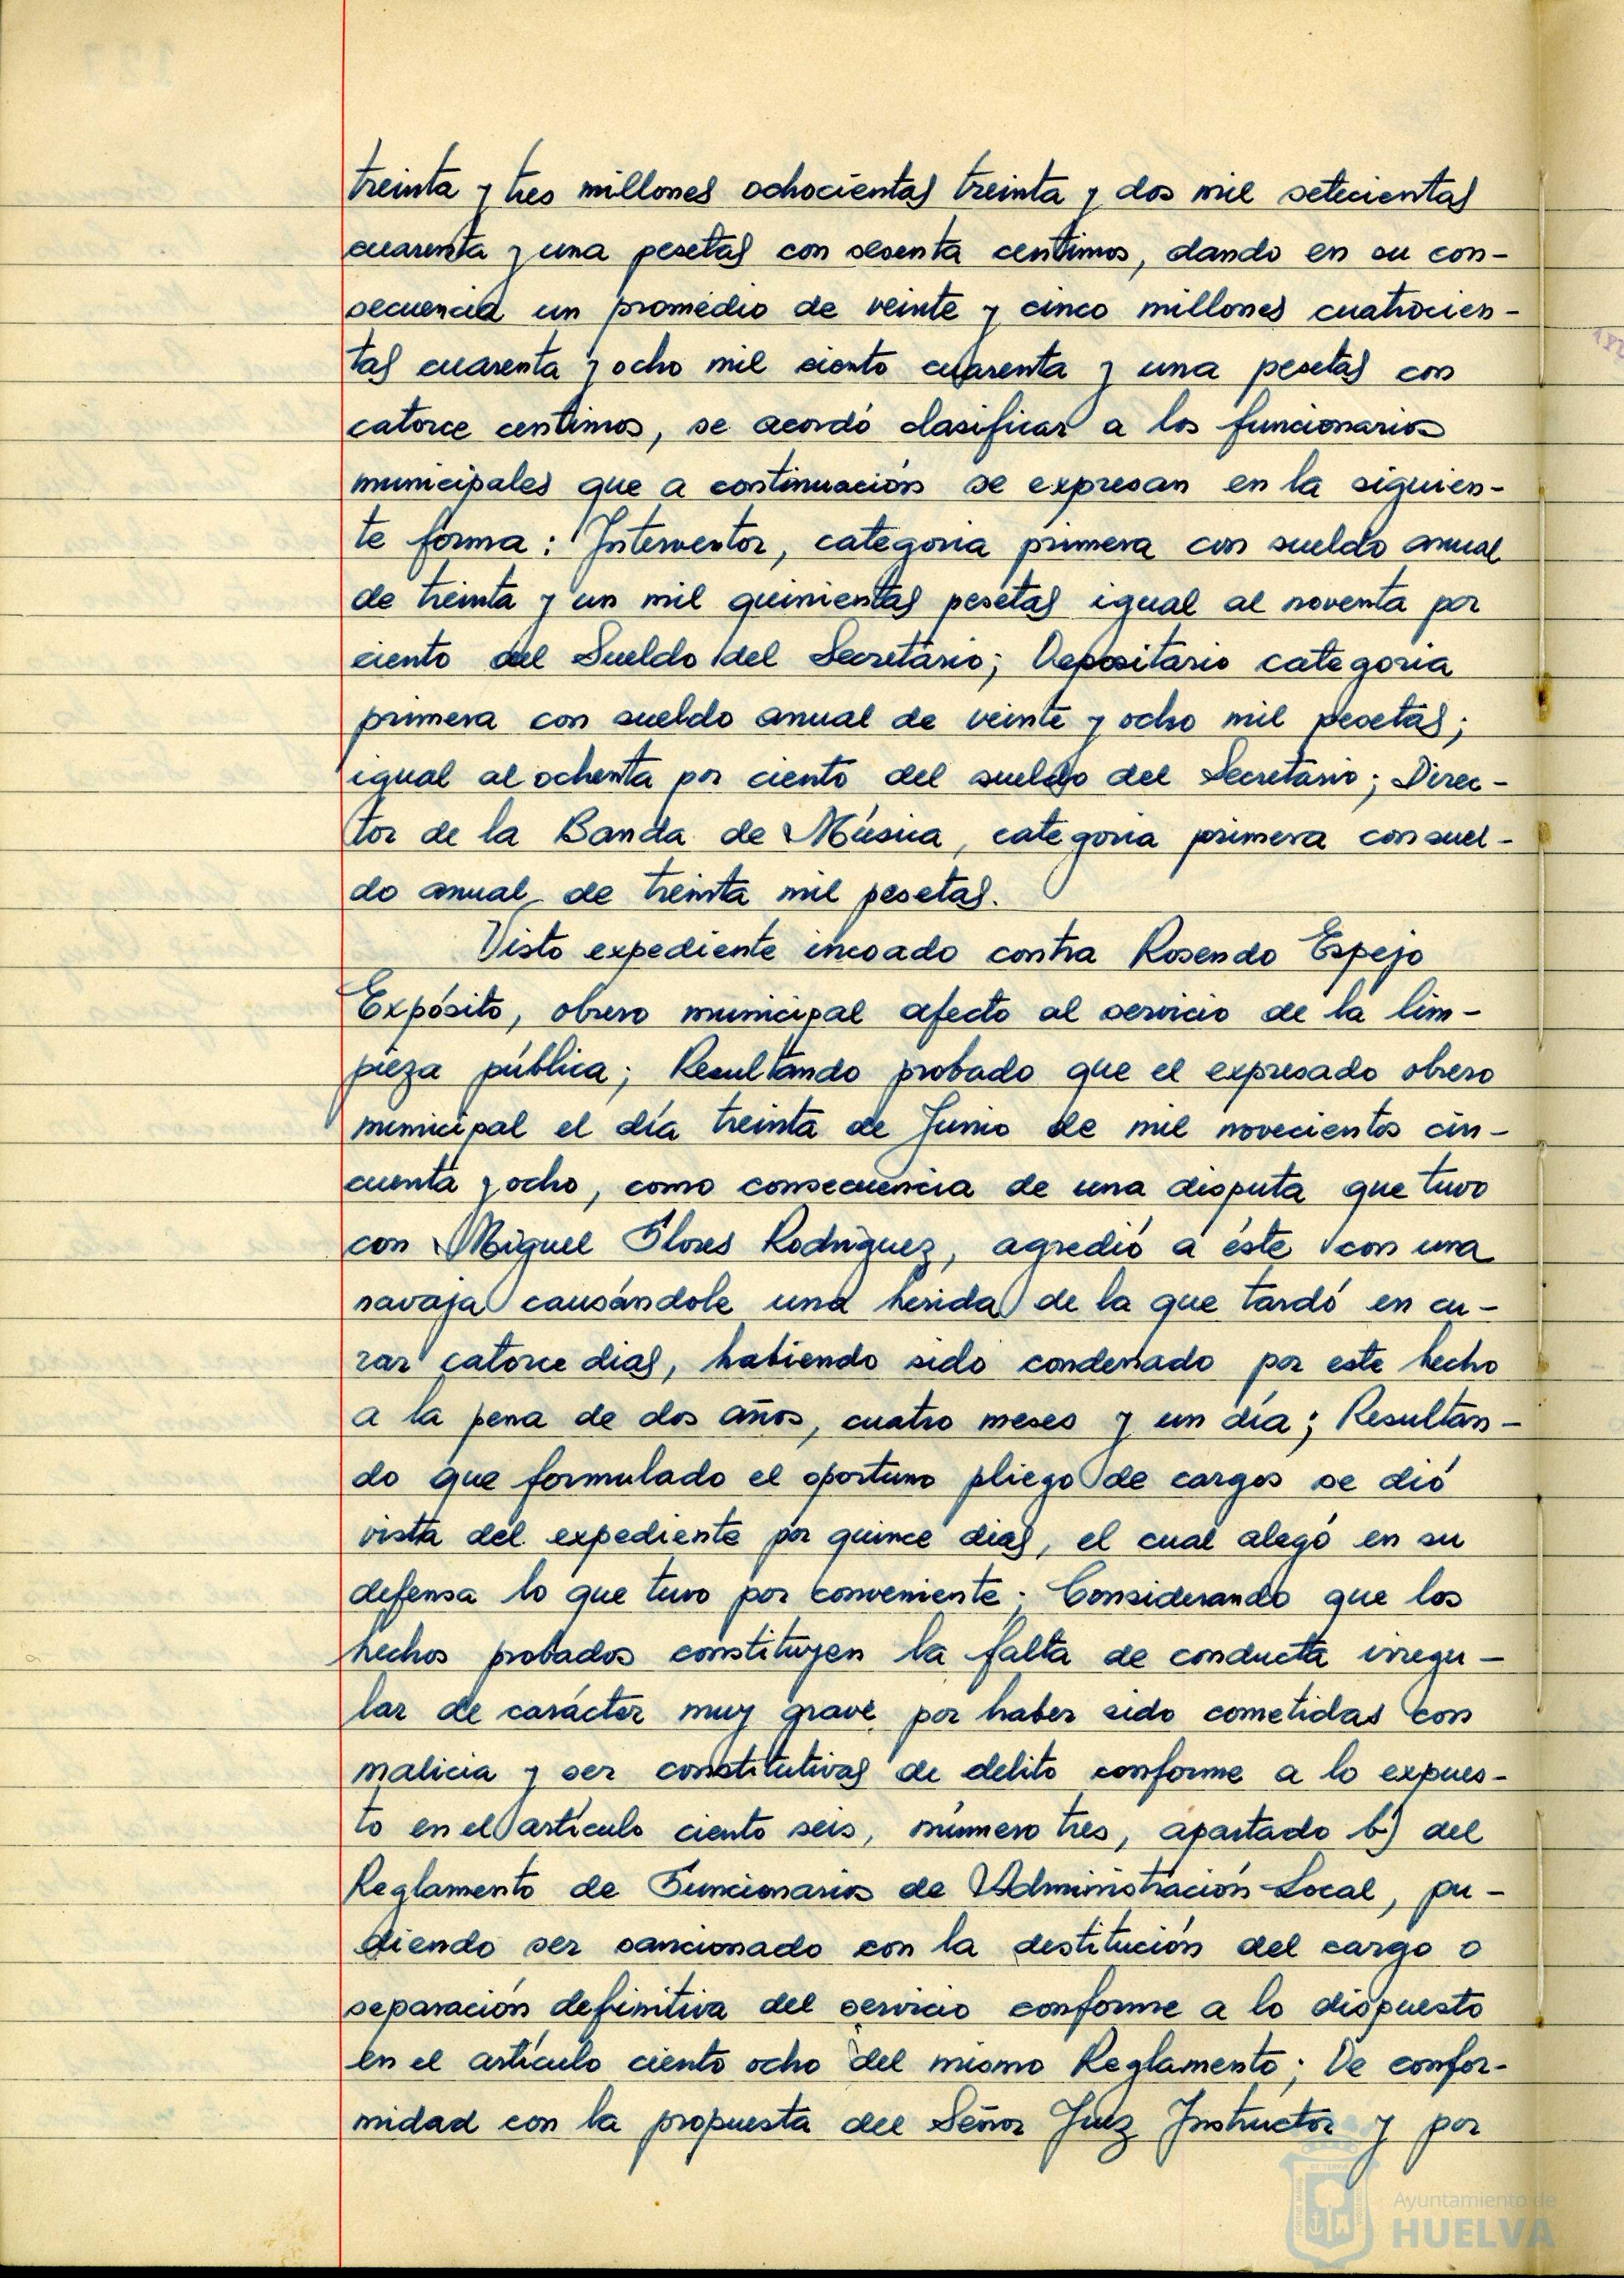 treinta y tres millones ochocientas treinta y dos mil setecientas
cuarenta y una pesetas con sesenta centimos, dando en su con-
secuencia un promedio de veinte y cinco millones cuatrocien-
tas cuarenta y ocho mil ciento cuarenta y una pesetas con
catorce centimos, se acordó clasificar a los funcionarios
municipales que a continuación se expresan en la siguien-
te forma: Interventor, categoria primera con sueldo anual
de treinta y un mil quinientas pesetas igual al noventa por
ciento del Sueldo del Secretario; Depositario categoria
primera con sueldo anual de veinte y ocho mil pesetas;
igual al ochenta por ciento del sueldo del Secretario; Direc-
tor de la Banda de Música, categoria primera con suel-
do anual de treinta mil pesetas.
Visto expediente incoado contra Rosendo Espejo
Expósito, obrero municipal afecto al servicio de la lim-
pieza pública; Resultando probado que el expresado obrero
municipal el día treinta de Junio de mil novecientos cin-
cuenta y ocho, como consecuencia de una disputa que tuvo
con Miguel Flores Rodríguez, agredió a éste con una
navaja causándole una herida de la que tardó en cu-
rar catorce dias, habiendo sido condenado por este hecho
a la pena de dos años, cuatro meses y un día; Resultan-
do que formulado el oportuno pliego de cargos se dió
vista del expediente por quince dias, el cual alegó en su
defensa lo que tuvo por conveniente; Considerando que los
hechos probados constituyen la falta de conducta irregu-
lar de carácter muy grave por haber sido cometidas con
malicia y ser constitutivas de delito conforme a lo expues-
to en el artículo ciento seis, número tres, apartado b) del
Reglamento de Funcionarios de Administración Local, pu-
diendo ser sancionado con la destitución del cargo o
separación definitiva del servicio conforme a lo dispuesto
en el artículo ciento ocho del mismo Reglamento; De confor-
midad con la propuesta del Señor Juez Instructor y por
Ayuntamiento de
HUELVA